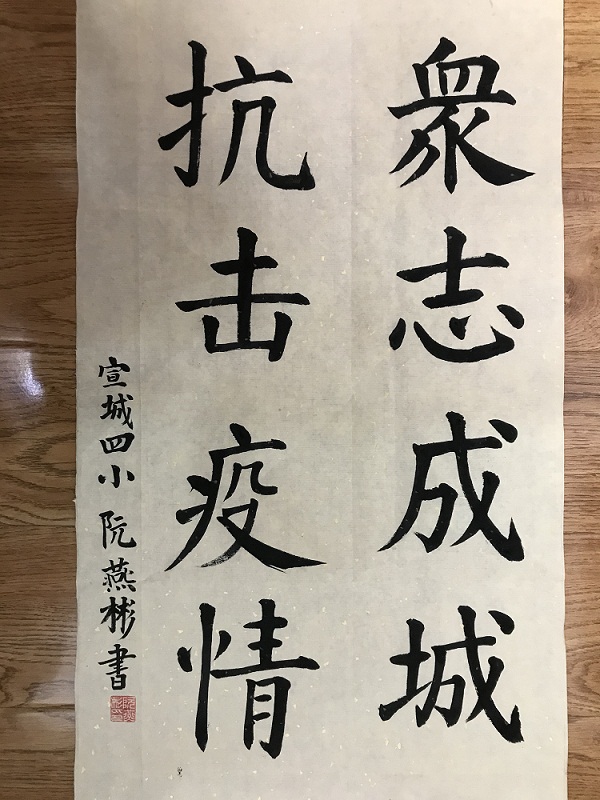 衆志成城
抗击疫情
宣城四小 阮燕彬書